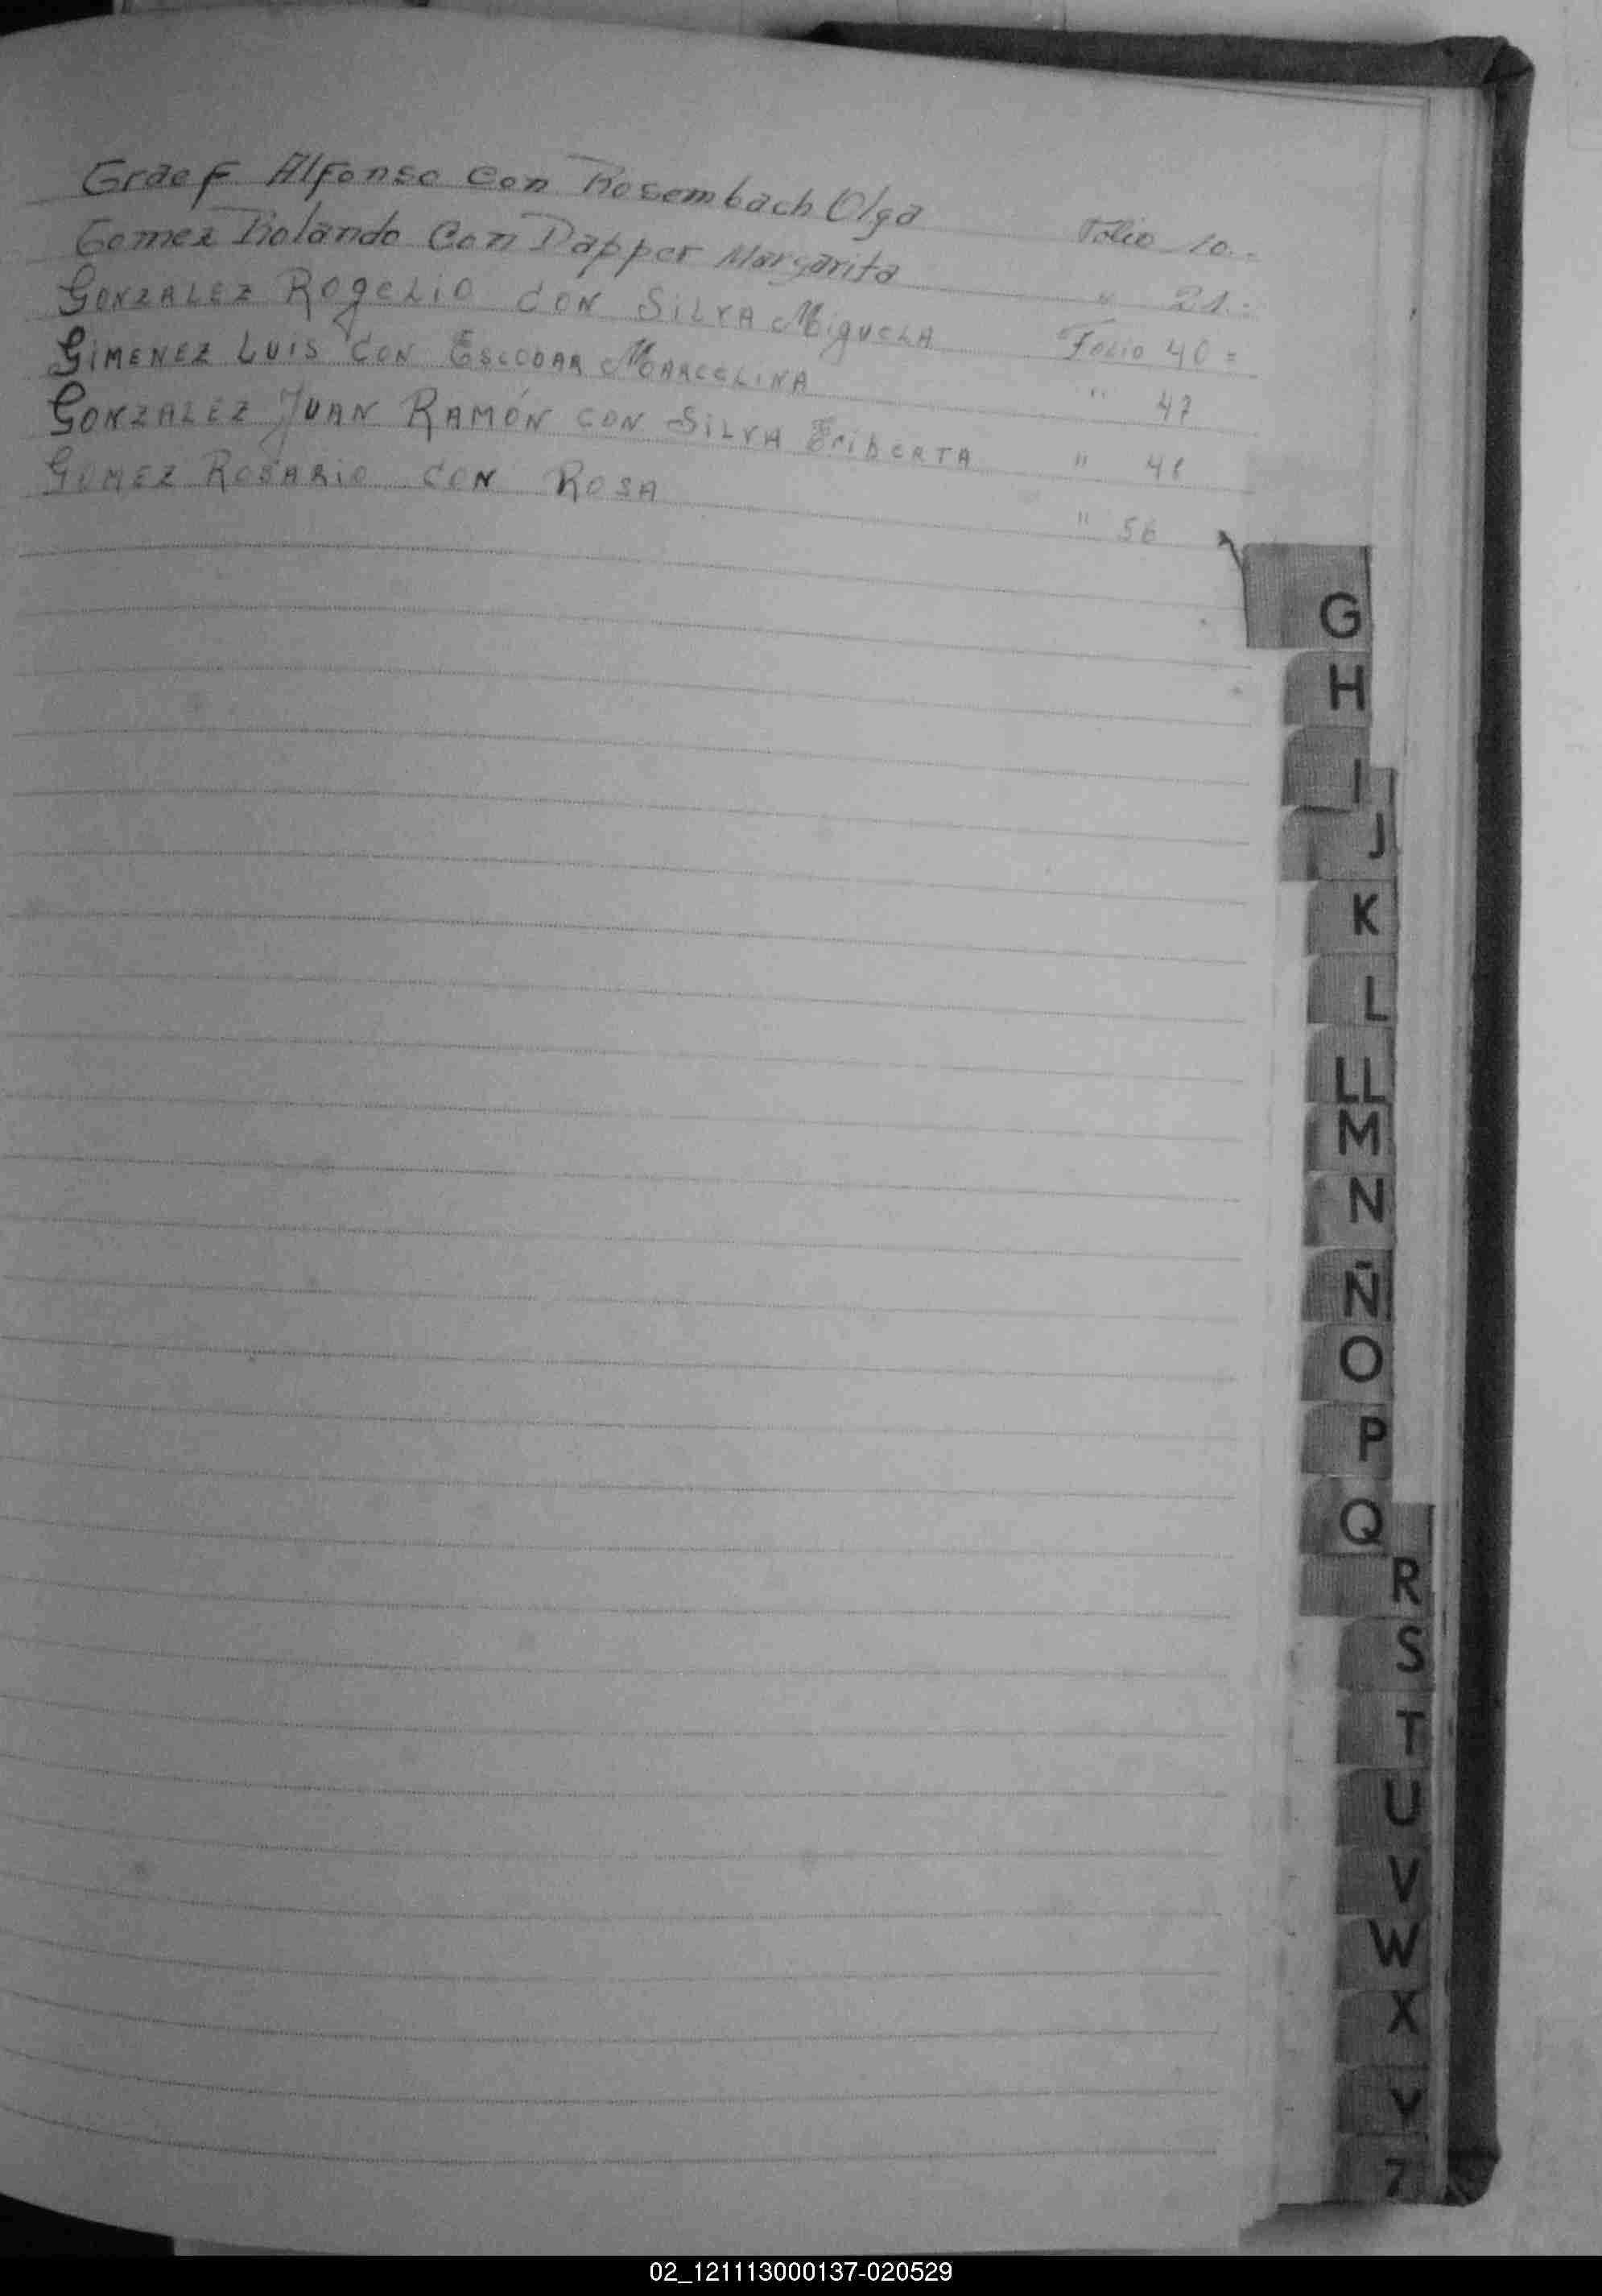 Graef Alfonso con Rosembach Olga Folio 10..
Gomez Rolando Con Dapper Margarita " 21.:
GONZALEZ ROGELIO CON SILVA MIGUELA Folio 40 =
GIMENEZ LUIS CON ESCOBAR MARCELINA " 47
GONZALEZ JUAN RAMÓN CON SILVA ERIBERTA " 48
GOMEZ ROSARIO CON ROSA " 56
G
H
I
J
K
L
LL
M
N
Ñ
O
P
Q
R
S
T
U
V
W
X
Y
Z
02_121113000137-020529